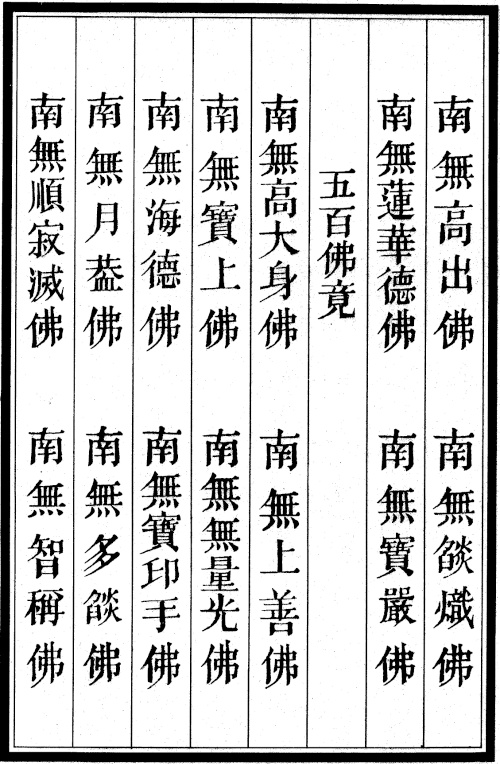 南無高出佛 南無燄熾佛
南無蓮華德佛 南無寶嚴佛
五百佛竟
南無高大身佛 南無上善佛
南無寶上佛 南無無量光佛
南無海德佛 南無寶印手佛
南無月葢佛 南無多燄佛
南無順寂滅佛 南無智稱佛